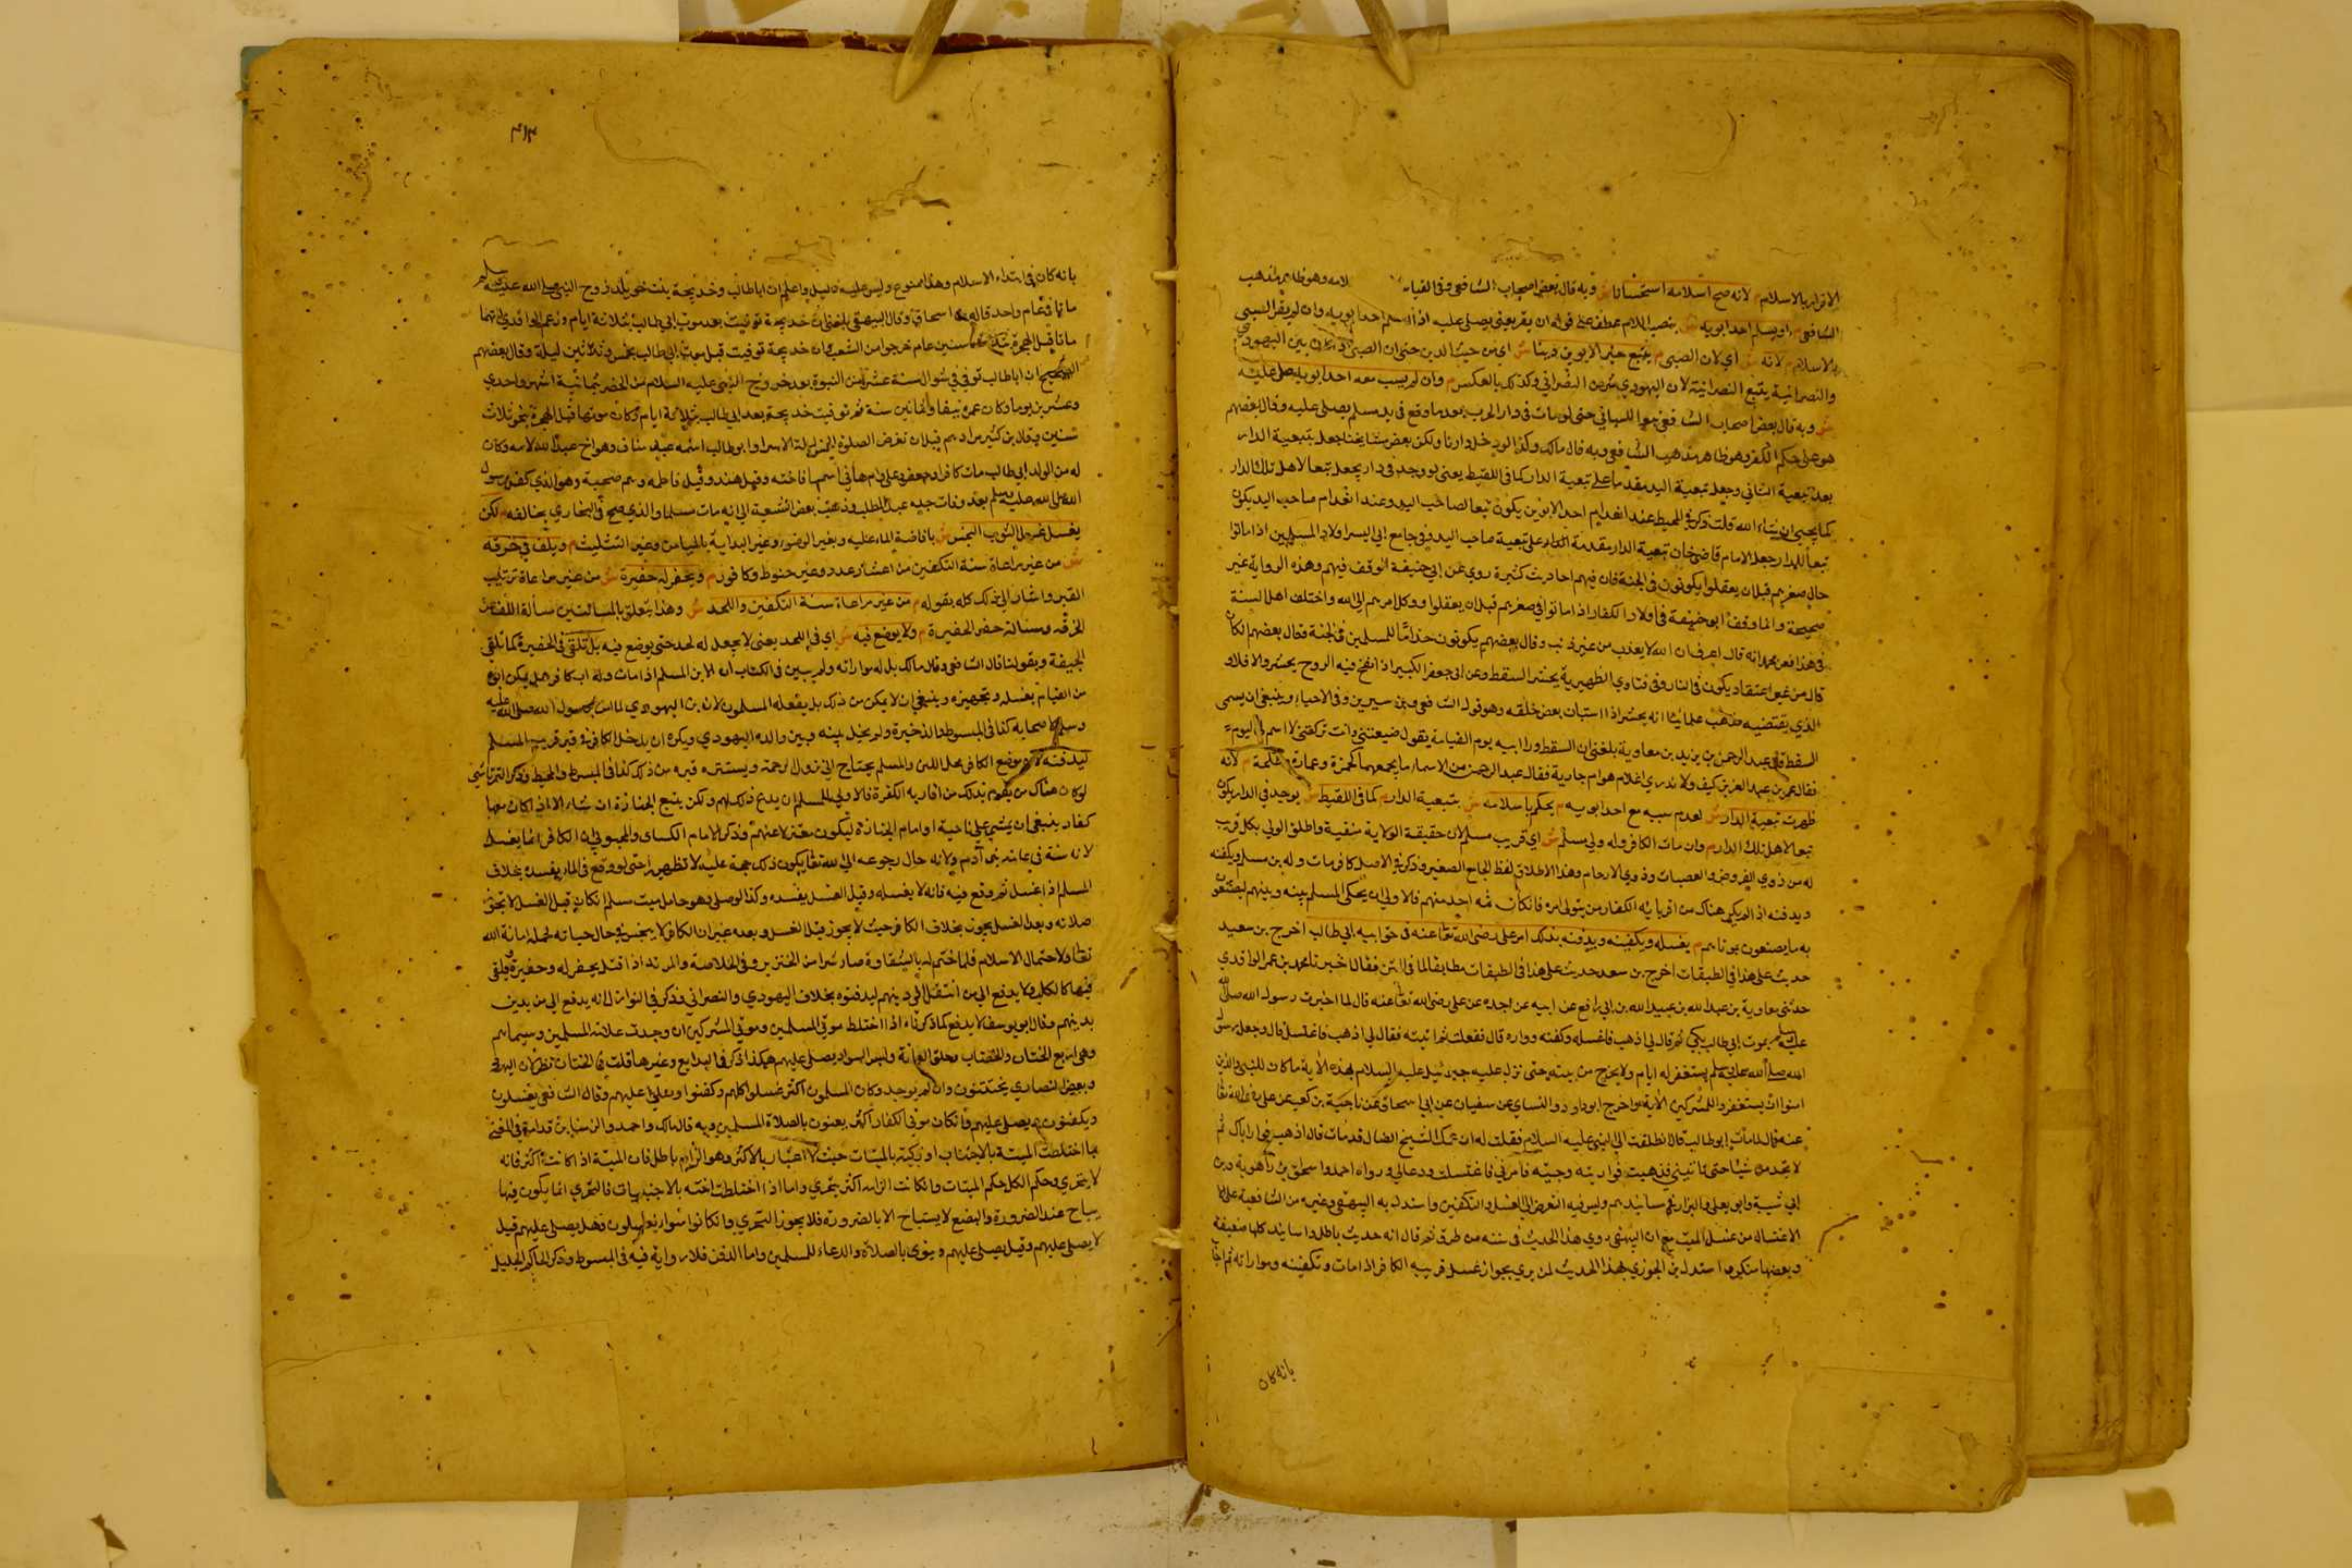 الاقرار بالاسلام م لانه صح اسلامه استحسانا ش وبه قال بعض اصحاب الشافعي وفي القياس لامه وهو ظاهر مذهب
الشافعي م او يسلم احد ابويه ش بنصب اللام عطف على قوله ان يقر يعني يصلي عليه اذا اسلم احد ابويه وان لم يقر الصبي
بالاسلام م لانه ش اي لان الصبي م يتبع خير الابوين دينا ش اي من حيث الدين حتى ان الصبي بين اليهودي
والنصرانية يتبع النصرانية لان اليهودي شر من النصراني وكذلك بالعكس م وان لم يسب معه احد ابويه صلى عليه
ش وبه قال بعض اصحاب الشافعي حتى لو مات في دار الحرب بعدما وقع في يد مسلم يصلى عليه وقال بعضهم
هو على حكم الكفر وهو ظاهر مذهب الشافعي وبه قال مالك وكذا لو دخل دارنا ولكن بعض مشايخنا جعل تبعية الدار
بعد تبعية السابي وجعل تبعية اليد مقدما على تبعية الدار كما في اللقيط يعني لو وجد في دار يجعل تبعا لاهل تلك الدار
كما يجيء ان شاء الله قلت ذكر في المحيط عند انعدام احد الابوين يكون تبعا لصاحب اليد وعند انعدام صاحب اليد يكون
تبعا للدار وجعل الامام قاضي خان تبعية الدار مقدمة على تبعية صاحب اليد وفي جامع ابي اليسر اولاد المسلمين اذا ماتوا
حال صغرهم قبل ان يعقلوا يكونون في الجنة فان فيهم احاديث كثيرة روي عن ابي حنيفة الوقف فيهم وهذه الرواية غير
صحيحة وانما وقف ابو حنيفة في اولاد الكفار اذا ماتوا في صغرهم قبل ان يعقلوا ووكل امرهم الى الله واختلف اهل السنة
في هذا فعن محمد انه قال اعرف ان الله لا يعذب من غير ذنب وقال بعضهم يكونون خداما للمسلمين في الجنة وقال بعضهم ان كان
قال من غير اعتقاد يكون في النار وفي فتاوي الظهيرية يحشر السقط وعن ابي جعفر الكبير اذا نفخ فيه الروح يحشر والا فلا و
الذي يقتضيه مذهب علمائنا انه يحشر اذا استبان بعض خلقه وهو قول الشافعي وابن سيرين وفي الاحياء وينبغي ان يسمى
السقط قال عبد الرحمن بن يزيد بن معاوية بلغني ان السقط وراء ابيه يوم القيامة يقول ضيعتني وانت تركتني لا اسم لي اليوم
فقال عمر بن عبد العزيز كيف ولا ندري اغلام هو ام جارية فقال عبد الرحمن من الاسماء ما يجمعهما كحمزة وعمارة وطلحة م لانه
ظهرت تبعية الدار ش لعدم سبيه مع احد ابويه م يحكم باسلامه ش بتبعية الدار م كما في اللقيط ش يوجد في الدار يكون
تبعا لاهل تلك الدار م وان مات الكافر وله ولي مسلم ش اي قريب مسلم لان حقيقة الولاية منفية واطلق الولي بكل قريب
له من ذوي الفروض والعصبات وذوي الارحام وهذا الاطلاق لفظ الجامع الصغير وذكر في الاصل كافر مات وله ابن مسلم ويكفنه
ويدفنه اذا لم يكن هناك من اقربائه الكفار من يتولى امره فان كان ثمه احد منهم فالاولى ان يخلي المسلم بينه وبينهم ليصنعوا
به ما يصنعون بموتاهم م يغسله ويكفنه ويدفنه بذلك امر علي رضي الله تعالى عنه في حق ابيه ابي طالب اخرج ابن سعد
حديث علي هذا في الطبقات اخرج ابن سعد حديث علي هذا في الطبقات مطابقا لما في المتن فقال اخبرنا محمد بن عمر الواقدي
حدثني معاوية بن عبد الله بن عبيد الله بن ابي رافع عن ابيه عن جده عن علي رضي الله تعالى عنه قال لما اخبرت رسول الله صلى الله
عليه وسلم بموت ابي طالب بكى ثم قال لي اذهب فاغسله وكفنه وواره قال ففعلت ثم اتيته فقال لي اذهب فاغتسل قال وجعل رسول
الله صلى الله عليه وسلم يستغفر له ايام ولا يخرج من بيته حتى نزل عليه جبرئيل عليه السلام بهذه الآية ما كان للنبي والذين
امنوا ان يستغفروا للمشركين الآية واخرج ابو داود والنسائي عن سفيان عن ابي اسحاق عن ناجية بن كعب عن علي رضي الله تعالى
عنه قال لما مات ابو طالب قال انطلقت الى النبي عليه السلام فقلت له ان عمك الشيخ الضال قد مات قال اذهب فوار اباك ثم
لا تحدث شيئا حتى تاتيني فذهبت فواريته وجئته فامرني فاغتسلت ودعا لي ورواه احمد واسحاق بن راهوية وابن
ابي شيبة وابو يعلى والبزار في مسانيدهم وليس فيه التعرض الى الغسل والتكفين واستدل به البيهقي وغيره من الشافعية على
الاغتسال من غسل الميت مع ان البيهقي روي هذا الحديث في سننه من طرق ثم قال انه حديث باطل واسانيد كلها ضعيفة
وبعضها منكر واستدل ابن الجوزي بهذا الحديث لمن يرى بجواز غسل قريبه الكافر اذا مات وتكفينه ومواراته ثم اجاب
بانه كان
٣١٣
بانه كان في ابتداء الاسلام وهذا ممنوع وليس عليه دليل واعلم ان ابا طالب وخديجة بنت خويلد زوج النبي صلى الله عليه وسلم
ماتا في عام واحد قاله ابن اسحاق وقال البيهقي بلغني ان خديجة توفيت بعد موت ابي طالب بثلاثة ايام وزعم الواقدي انهما
ماتا قبل الهجرة بثلاث سنين عام خرجوا من الشعب وان خديجة توفيت قبل موت ابي طالب بخمس وثلاثين ليلة وقال بعضهم
الصحيح ان ابا طالب توفي في شوال سنة عشر من النبوة بعد خروج النبي عليه السلام من الحصر بثمانية اشهر واحدي
وعشرين يوما وكان عمره نيفا وثمانين سنة ثم توفيت خديجة بعد ابي طالب بثلاثة ايام وكان موتها قبل الهجرة بنحو ثلاث
سنين وقال ابن كثير مرادهم قبل ان تفرض الصلوة الخمس ليلة الاسراء وابو طالب اسمه عبد مناف وهو اخ عبد الله لامه وكان
له من الولد ابي طالب مات كافرا وجعفر وعلي وام هانئ اسمها فاختة وقيل هند وقيل فاطمة وهم صحبة وهو الذي كفل رسول
الله صلى الله عليه وسلم بعد وفات جده عبد المطلب وذهب بعض الشيعة الى انه مات مسلما والذي صح في البخاري يخالفه م لكن
يغسل غسل الثوب النجس ش بافاضة الماء عليه وبغير الوضوء وغير البداية بالميامن وغير التثليث م ويلف في خرقة
ش من غير مراعاة سنة التكفين من اعتبار عدد وغير حنوط وكافور م ويحفر له حفيرة ش من غير مراعاة ترتيب
القبر واشار الى ذلك كله بقوله م من غير مراعاة سنة التكفين واللحد ش وهذا يتعلق بالمسئلتين مسألة اللف في
الخرقة ومسألة حفر الحفيرة م ولا يوضع فيه ش اي في اللحد يعني لا يجعل له لحد حتى يوضع فيه بل تلقى في الحفيرة كما تلقى
الجيفة وبقولنا قال الشافعي وقال مالك بل له مواراته ولم يبين في الكتاب ان الابن المسلم اذا مات وله اب كافر هل يمكن ابوه
من القيام بغسله وتجهيزه وينبغي ان لا يمكن من ذلك بل يفعله المسلمون لان ابن اليهودي لما مات رسول الله صلى الله عليه
وسلم لاصحابه كذا في المبسوط والذخيرة ولم يخل بينه وبين والده اليهودي ويكره ان يدخل الكافر في قبر قريبه المسلم
ليدفنه لان موضع الكافر محل اللعن والمسلم يحتاج الى نزول الرحمة ويستنزه قبره من ذلك كذا في المبسوط والمحيط وذكر التمرتاشي
لو كان هناك من يقوم بذلك من اقاربه الكفرة فالاولى للمسلم ان يدع ذلك لهم ولكن يتبع الجنازة ان شاء الا اذا كان معها
كفار ينبغي ان يمشي على ناحية او امام الجنازة ليكون معتزلا عنهم وذكر الامام الكسائي والمحبوبي ان الكافر انما يغسل
لانه سنة في عامة بني آدم ولانه حال رجوعه الى الله تعالى يكون ذلك حجة عليه لا تطهيرا حتى لو وقع في الماء يفسده بخلاف
المسلم اذا غسل ثم وقع فيه فانه لا يفسده وقبل الغسل يفسده وكذا لو صلى وهو حامل ميت مسلم ان كان قبل الغسل لا تجوز
صلاته وبعد الغسل يجوز بخلاف الكافر حيث لا يجوز قبل الغسل وبعده غير ان الكافر لا ينجس في حال حياته لحمله امانة الله
تعالى ولاحتمال الاسلام فلما ختم له بالشقاوة صار شرا من الخنزير وفي الخلاصة والمرتد اذا قتل يحفر له حفيرة ويلقى
فيها كالكلب ولا يدفع الى من انتقل الى دينهم ليدفنوه بخلاف اليهودي والنصراني وذكر في النوازل انه يدفع الى من يدين
بدينهم وقال ابو يوسف لا يدفع كما ذكرناه اذا اختلط موتى المسلمين وموتى المشركين ان وجدت علامة المسلمين وسيماهم
وهي اربع الختان والخضاب وحلق العانة ولبس السواد يصلى عليهم هكذا ذكر في البدايع وغيرها قلت في الختان نظر لان اليهود
وبعض النصاري يختتنون وان لم يوجد وكان المسلمون اكثر غسلوا كلهم وكفنوا وصلى عليهم وقال الشافعي يغسلون
ويكفنون ويصلى عليهم وان كان موتى الكفار اكثر يعنون بالصلاة المسلمين وبه قال مالك واحمد والمزني ابن قدامة في المغني
لا يتحري وحكم الكل حكم الميتات وان كانت اكثر يتحري واما اذا اختلطت اخته بالاجنبيات فالتحري انما يكون فيما
يباح عند الضرورة والبضع لا يستباح الا بالضرورة فلا يجوز التحري وان كانوا سواء فهل يصلى عليهم قيل
لا يصلى عليهم وقيل يصلى عليهم وينوى بالصلاة والدعاء للمسلمين واما الدفن فلا رواية فيه في المبسوط وذكر الحاكم الجليل